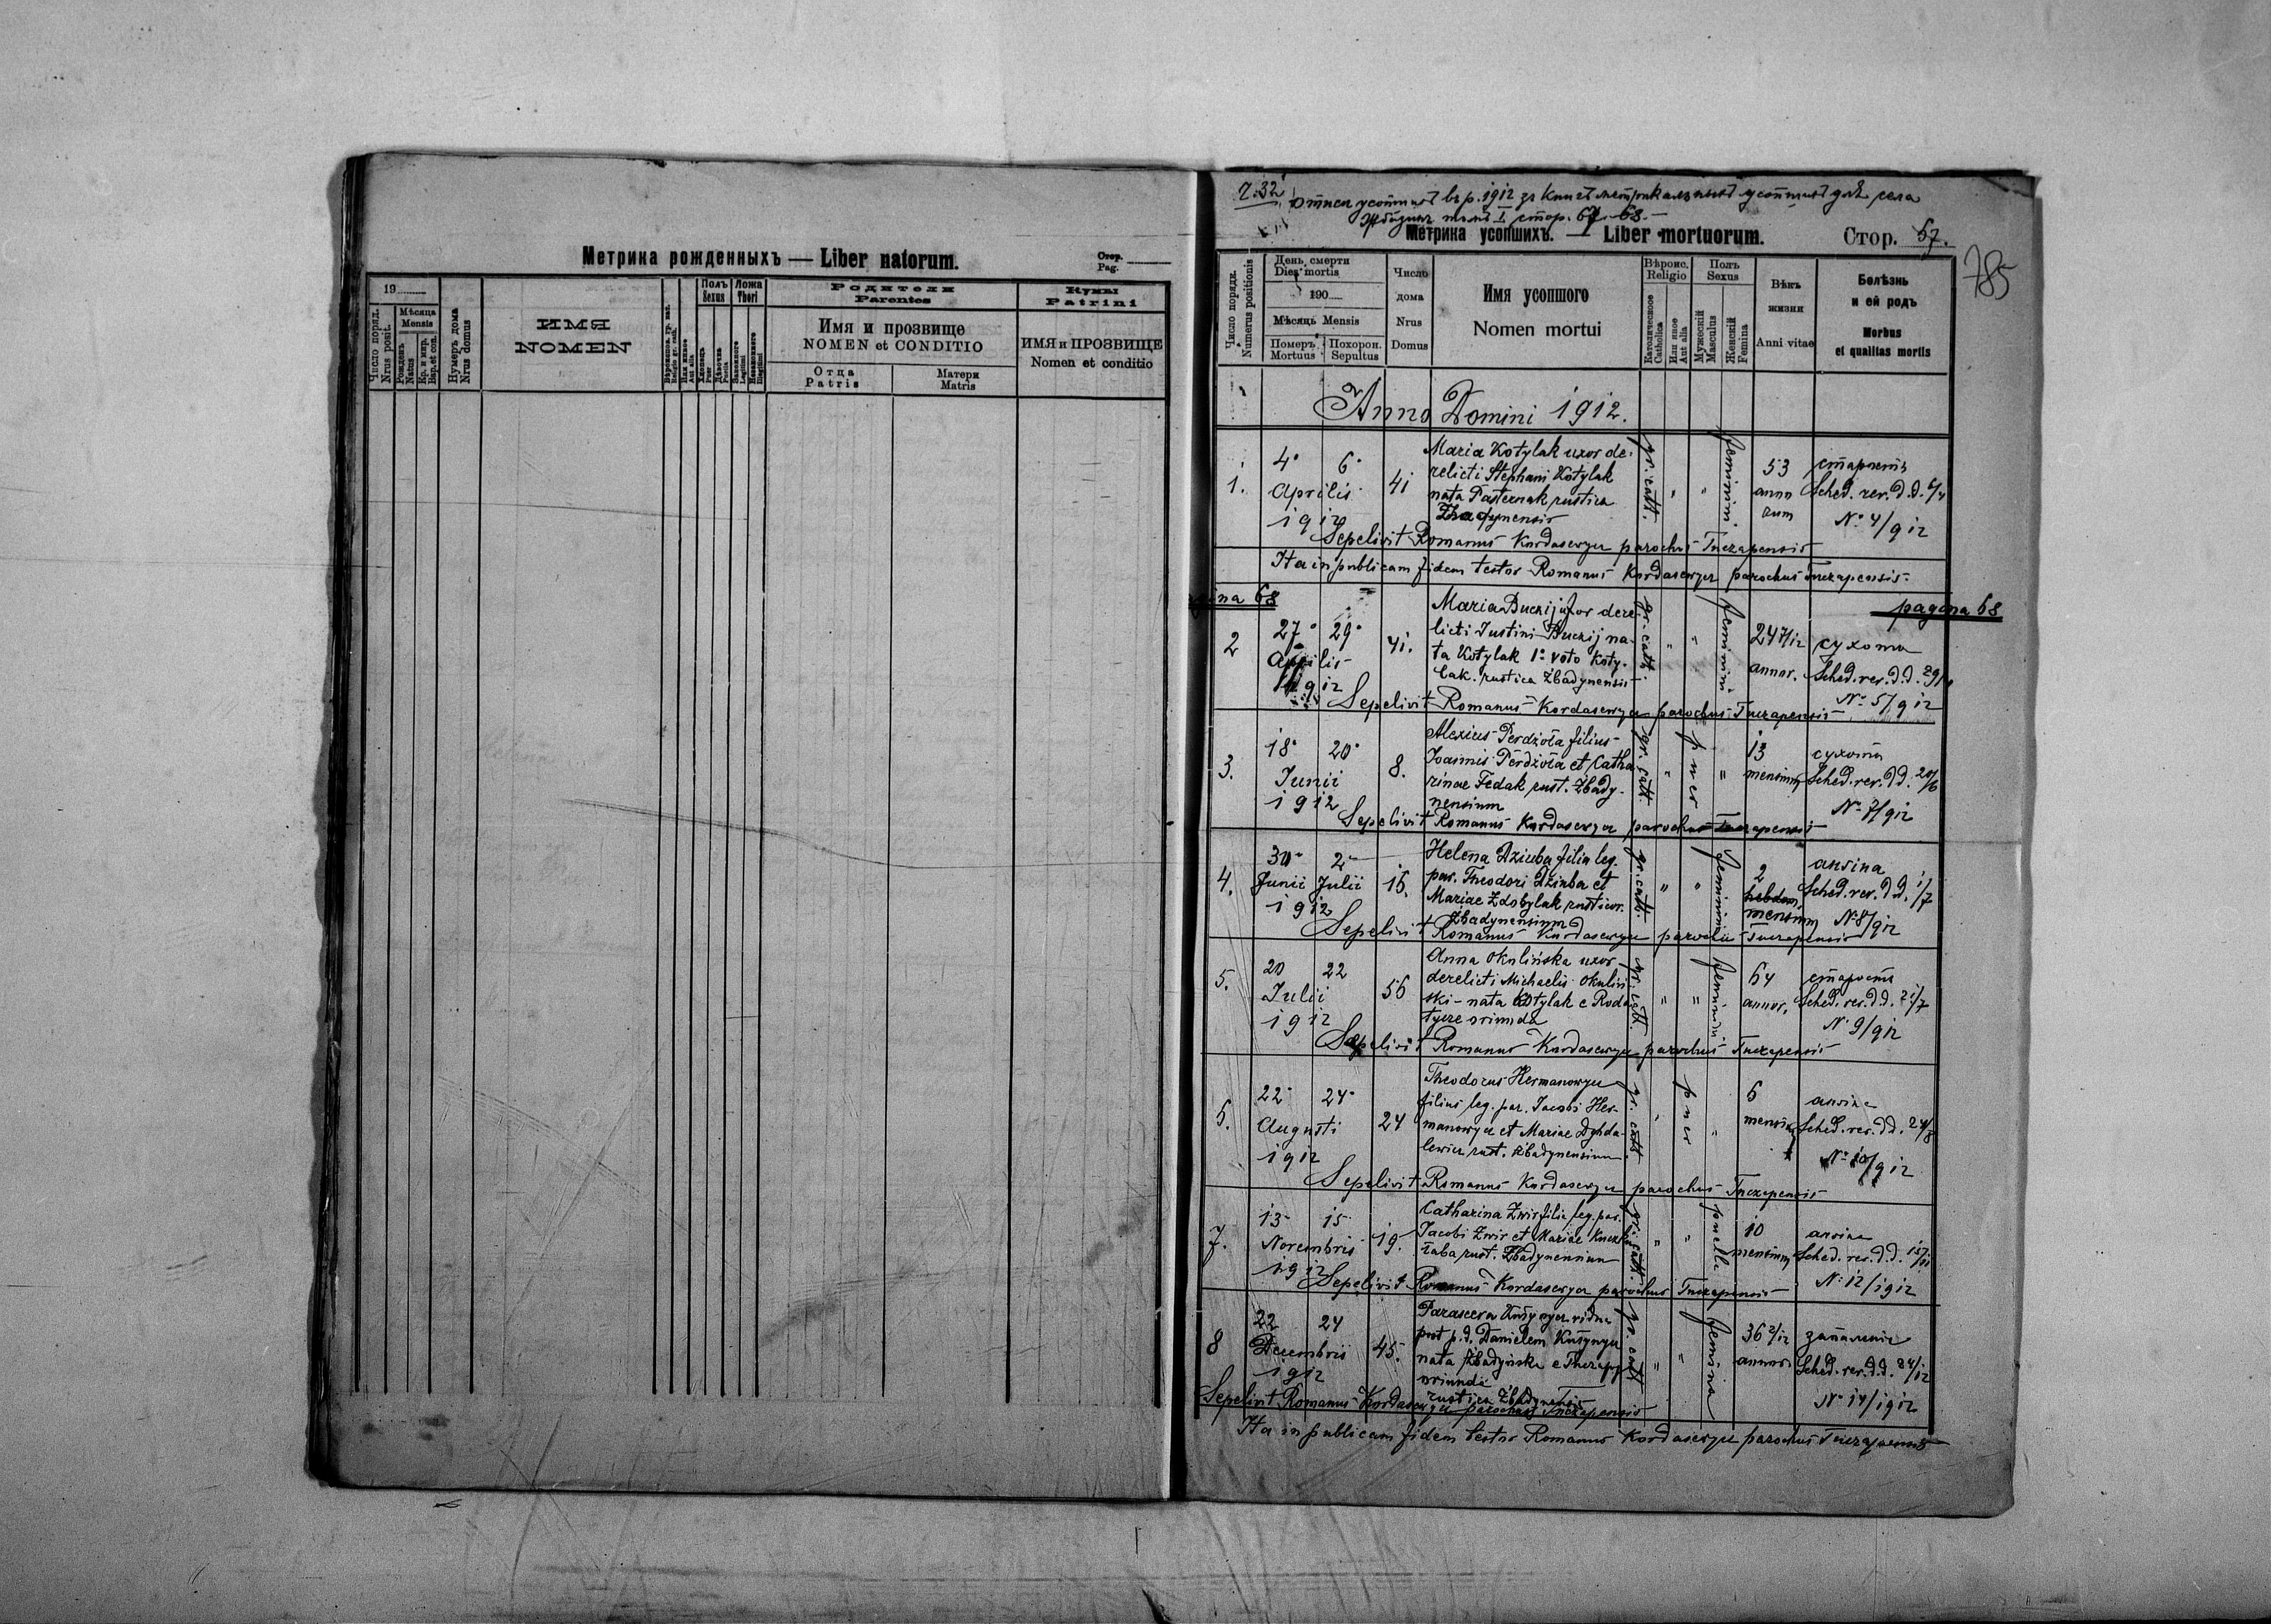 Метрика рожденныхъ — Liber natorum.
Стор.
Pag.
19
Число поряд.
Nrus posit.
Мѣсяца
Mensis
Рожденъ
Natus
Кр. и мир.
Bap. et con.
Нумеръ дома
Nrus domus
ИМЯ
NOMEN
Или иное
Aut alia
Полъ
Sexus
Хлопецъ
Puer
Дѣвочка
Puella
Ложа
Thori
Законного
Legitimi
Незаконного
Illegitimi
Родители
Parentes
Имя и прозвище
NOMEN et CONDITIO
Отца
Patris
Матери
Matris
Кумы
Patrini
ИМЯ и ПРОЗВИЩЕ
Nomen et conditio
Ч. 32
въ р. 1912 усопшихъ для села
томъ I стор. 67-68.
Метрика усопшихъ. — Liber mortuorum.
Стор. 67.
785
Число порядк.
Numerus positionis
День смерти
Dies mortis
190
Мѣсяць Mensis
Померъ
Mortuus
Похорон.
Sepultus
Число
дома
Nrus
Domus
Имя усопшого
Nomen mortui
Вѣроис.
Religio
Католическое
Catholica
Или иное
Aut alia
Полъ
Sexus
Мужескій
Masculus
Женскій
Femina
Вѣкъ
жизни
Anni vitae
Болѣзнь
и ей родъ
Morbus
et qualitas mortis
Anno Domini 1912.
1.
4. 6.
Aprilis
1912
41
Maria Kotylak uxor de-
relicti Stephani Kotylak
nata Pasternak rustica
Zbadynensis
gr. cath.
" "
feminini
53
anno
rum
старость
Sched. rev. d.d. 6/4
No 4/912
Sepelivit Romanus Kordasewycz parochus Tuczapensis
Ita in publicam fidem testor Romanus Kordasewycz parochus Tuczapensis.
pagina 68
2
27. 29.
Aprilis
1912
41.
Maria Buczij uxor dere-
licti Justini Buczij na-
ta Kotylak 1o voto Koty-
lak. rustica Zbadynensis
gr. cath.
" "
feminini
24 7/12
annor.
сухота
Sched. rev. d.d. 29/4
No 5/912
Sepelivit Romanus Kordasewycz parochus Tuczapensis
3.
18. 20.
Junii
1912
8.
Alexius Perdżoła filius
Joannis Perdżoła et Catha-
rinae Fedak rust. Zbady-
nensium
gr. cath.
"
puer
"
13
mensium
сухота
Sched. rev. d.d. 20/6
No 7/912
Sepelivit Romanus Kordasewycz parochus Tuczapensis
4.
30. 2.
Junii Julii
1912
15.
Helena Dziuba filia leg.
par. Theodori Dziuba et
Mariae Zdobylak rusticor.
Zbadynensium
gr. cath.
" "
feminini
2
hebdom.
mensium
ansina
Sched. rev. d.d. 1/7
No 8/912
Sepelivit Romanus Kordasewycz parochus Tuczapensis
5.
20 22
Julii
1912
56
Anna Okulińska uxor
derelicti Michaelis Okuliń-
ski - nata Kotylak e Roda-
tycze oriunda
gr. cath.
" "
feminini
64
annor.
старость
Sched. rev. d.d. 21/7
No 9/912
Sepelivit Romanus Kordasewycz parochus Tuczapensis
6.
22. 24.
Augusti
1912
24
Theodorus Hermanowycz
filius leg. par. Jacobi Her-
manowycz et Mariae Dyhda-
lewicz rust. Zbadynensium
gr. cath.
"
puer
"
6
mensium
ansina
Sched. rev. d.d. 24/8
No 10/912
Sepelivit Romanus Kordasewycz parochus Tuczapensis
7.
13 15
Novembris
1912
19.
Catharina Zwir filia leg. par.
Jacobi Zwir et Mariae
rust. Zbadynensium
gr. cath.
" "
puella
10
mensium
ansina
Sched. rev. d.d. 15/11
No 12/1912
Sepelivit Romanus Kordasewycz parochus Tuczapensis
8
22 24
Decembris
1912
45.
Parasceva vidua
post p. d. Danielem
nata Zbadyńska e Tuczapy
oriunda
rustica Zbadynensis
gr. cath.
" "
femina
36 2/12
annor.
запаленіе
Sched. rev. d.d. 24/12
No 14/1912
Sepelivit Romanus Kordasewycz parochus Tuczapensis
Ita in publicam fidem testor Romanus Kordasewycz parochus Tuczapensis